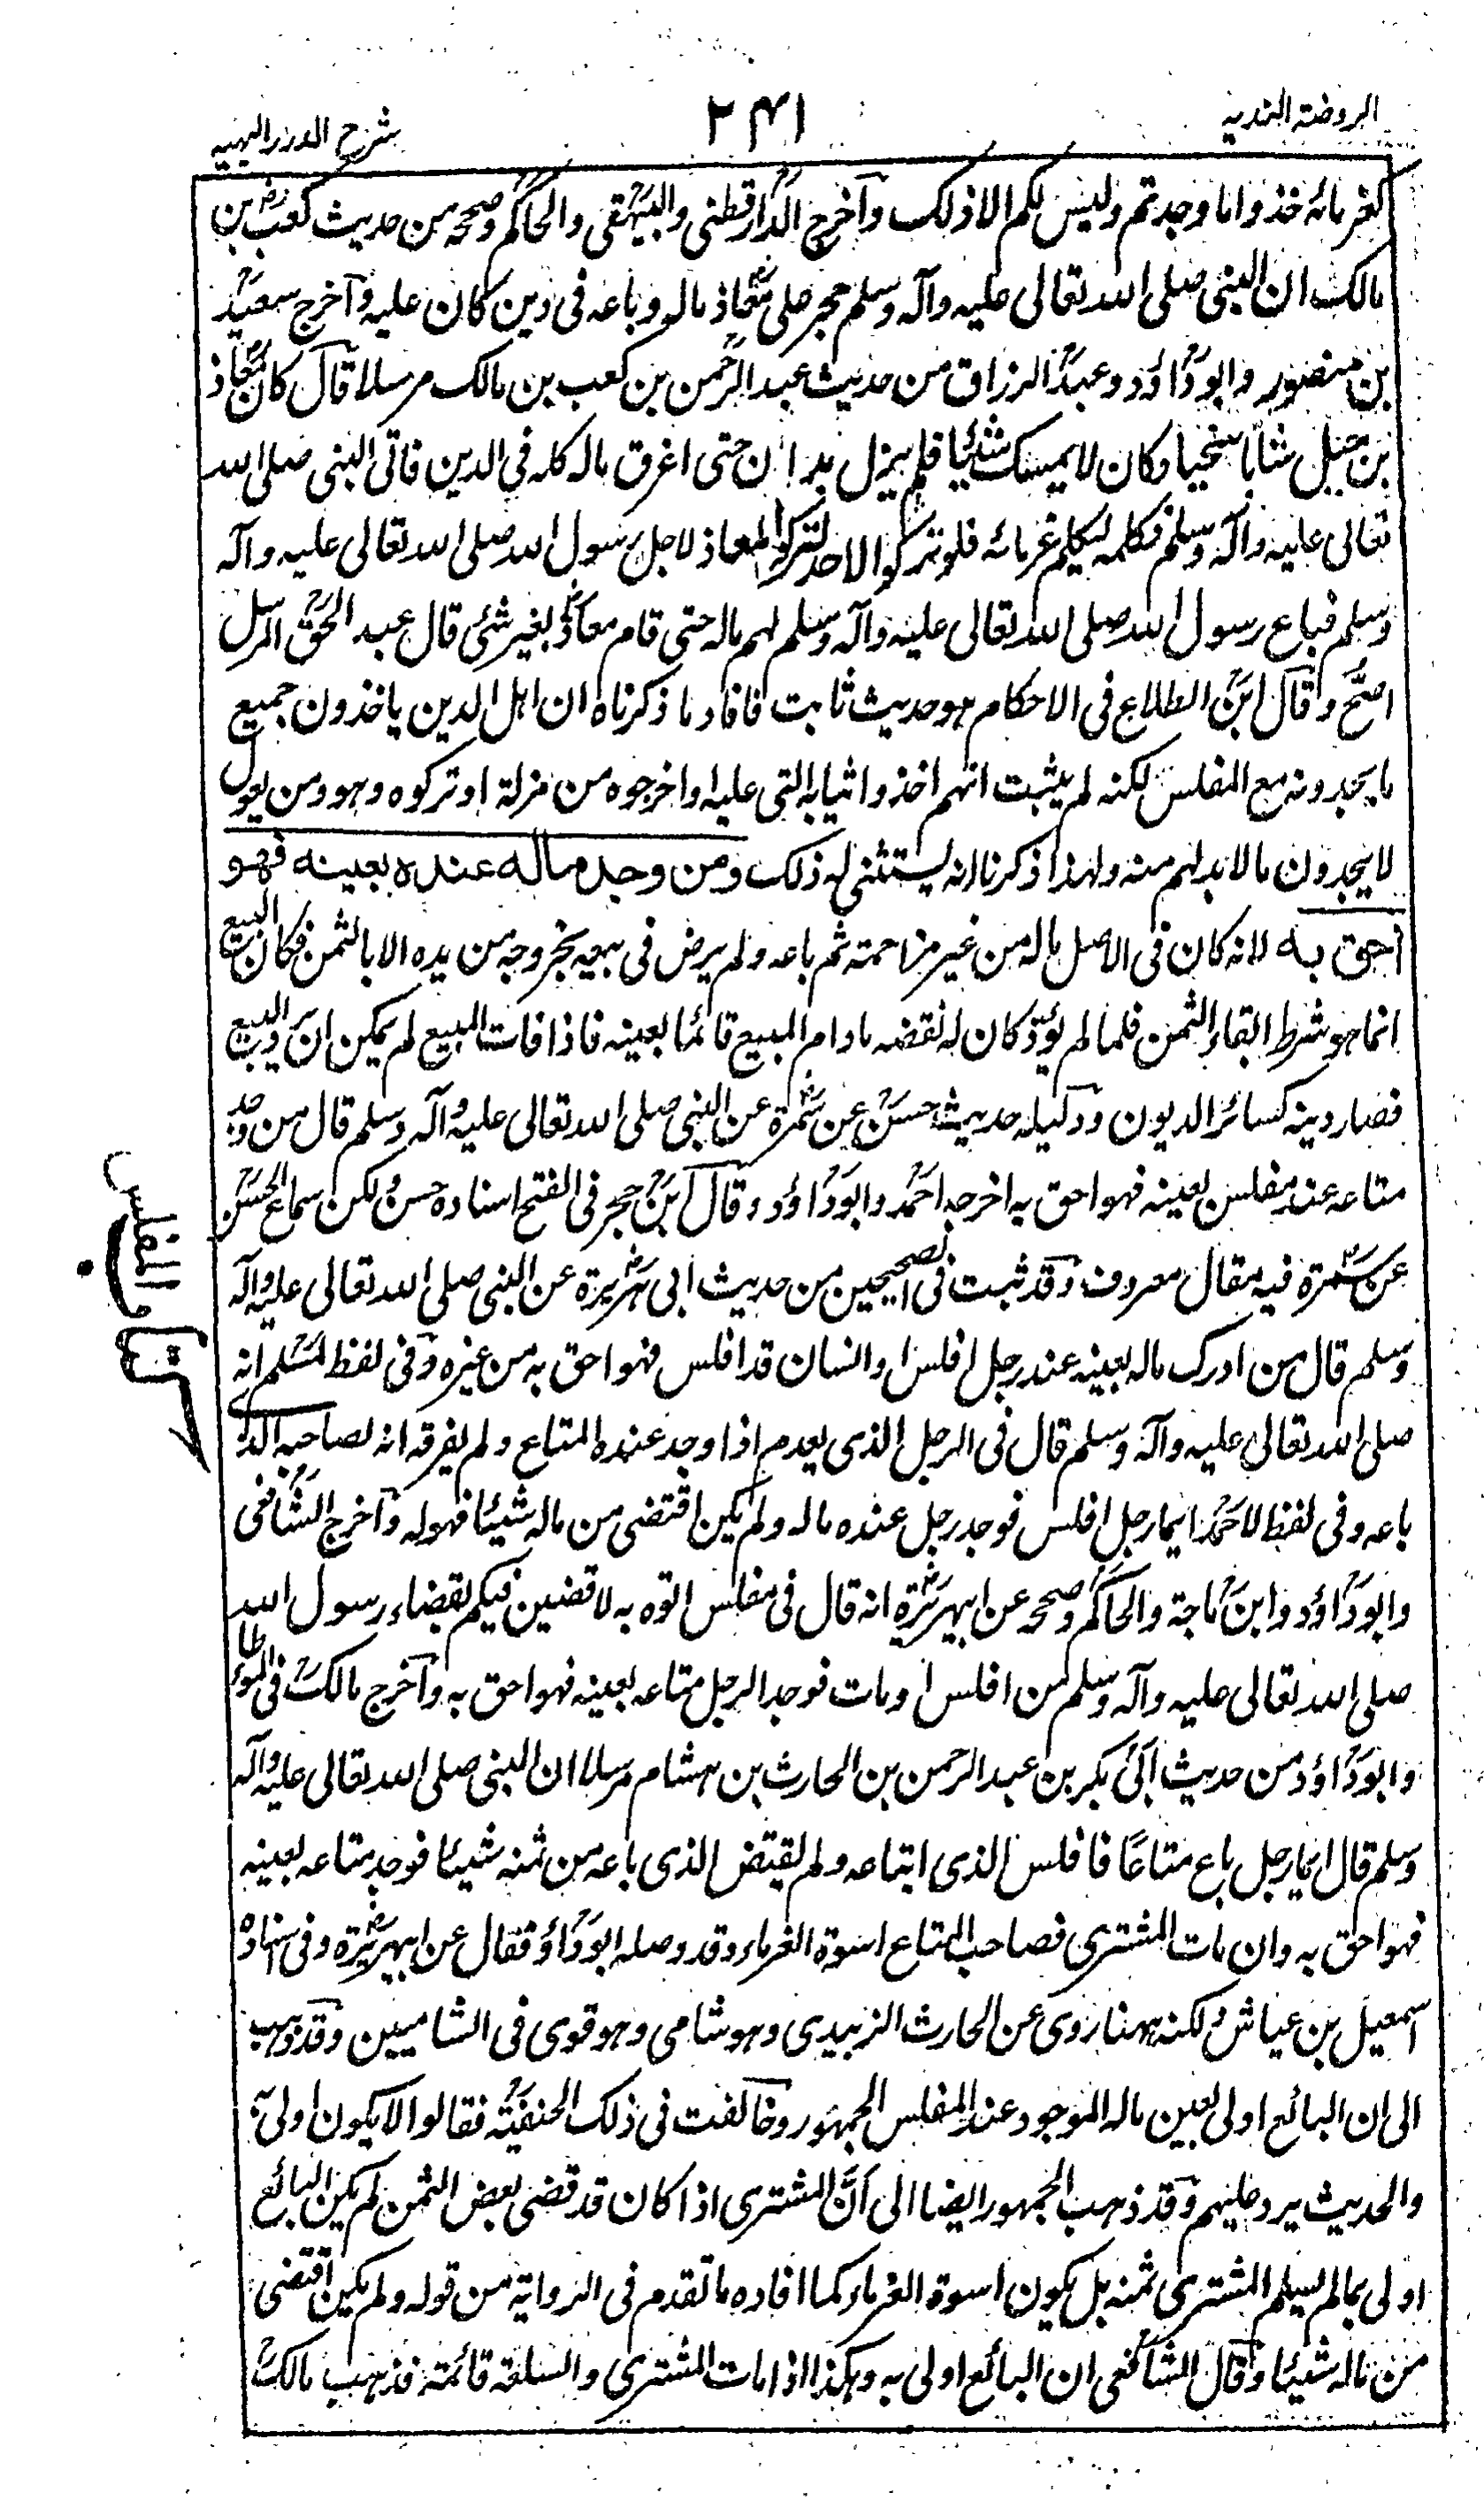 الروضة الندية
٢٤١
شرح الدرر البهية
لغرمائه خذوا ما وجدتم وليس لكم الا ذلك وآخرج الدارقطنی والبیهقی والحاكم وصححه من حدیث كعب بن
مالک ان النبی صلی الله تعالی علیه وآله وسلم حجر علی معاذ ماله وباعه فی دین كان علیه وآخرج سعید
بن منصور وابو داؤد وعبد الرزاق من حدیث عبد الرحمن بن كعب بن مالک مرسلا قال كان معاذ
بن جبل شابا سخیا وكان لا یمسک شئیا فلم یزل یدان حتی اغرق ماله كله فی الدین فاتی النبی صلی الله
تعالی علیه وآله وسلم فكلمه لیكلم غرمائه فلو تركوا لاحد لتركوا لمعاذ لاجل رسول الله صلی الله تعالی علیه وآله
وسلم فباع رسول الله صلی الله تعالی علیه وآله وسلم لهم ماله حتی قام معاذ بغیر شئ قال عبد الحق المرسل
اصح وقال ابن الطلاع فی الاحكام هو حدیث ثابت فافاد ما ذكرناه ان اهل الدین یاخذون جمیع
ما یجدونه مع المفلس لكنه لم یثبت انهم اخذوا ثیابه التی علیه او اخرجوه من منزلة او تركوه وهو ومن یعول
لا یجدون ما لابد لهم منه ولهذا ذكرنا انه یستثنی له ذلک ومن وجد ماله عنده بعینه فهو
احق به لانه كان فی الاصل ماله من غیر مزاحمة ثم باعه ولم یرض فی بیعه بخروجه من یده الا بالثمن فكان البیع
انما هو شرط ابقاء الثمن فلما لم یؤد كان له نقضه ما دام المبیع قائما بعینه فاذا فات المبیع لم یمكن ان یرد البیع
فصار دینه كسائر الدیون ودلیله حدیث حسن عن سمرة عن النبی صلی الله تعالی علیه وآله وسلم قال من وجد
متاعه عند مفلس بعینه فهو احق به اخرجه احمد وابو داؤد وقال ابن حجر فی الفتح اسناده حسن لكن سماع الحسن
عن سمرة فیه مقال معروف وقد ثبت فی الصحیحین من حدیث ابی هریرة عن النبی صلی الله تعالی علیه وآله
وسلم قال من ادرک ماله بعینه عند رجل افلس او انسان قد افلس فهو احق به من غیره وفی لفظ لمسلم انه
صلی الله تعالی علیه وآله وسلم قال فی الرجل الذی یعدم اذا وجد عنده المتاع ولم یفرقه انه لصاحبه الذی
باعه وفی لفظ لاحمد ایما رجل افلس فوجد رجل عنده ماله ولم یكن اقتضی من ماله شیئا فهو له وآخرج الشافعی
وابو داؤد وابن ماجة والحاكم وصححه عن ابیهریرة انه قال فی مفلس اتوه به لاقضین فیكم بقضاء رسول الله
صلی الله تعالی علیه وآله وسلم من افلس او مات فوجد الرجل متاعه بعینه فهو احق به وآخرج مالک فی الموطا
وابو داؤد من حدیث ابی بكر بن عبد الرحمن بن الحارث بن هشام مرسلا ان النبی صلی الله تعالی علیه وآله
وسلم قال ایما رجل باع متاعًا فافلس الذی ابتاعه ولم یقبض الذی باعه من ثمنه شیئا فوجد متاعه بعینه
فهو احق به وان مات المشتری فصاحب المتاع اسوة الغرماء وقد وصله ابو داؤد فقال عن ابیهریرة وفی اسناده
اسمعیل بن عیاش ولكنه ههنا روی عن الحارث الزبیدی وهو شامی وهو قوی فی الشامیین وقد ذهب
الی ان البائع اولی بعین ماله الموجود عند المفلس الجمهور وخالفت فی ذلک الحنفیة فقالوا لا یكون اولی به
والحدیث یرد علیهم وقد ذهب الجمهور ایضا الی ان المشتری اذا كان قد قضی بعض الثمن لم یكن البائع
اولی بما لم یسلم المشتری ثمنه بل یكون اسوة الغرماء كما افاده ما تقدم فی الروایة من قوله ولم یكن اقتضی
من ماله شیئا وقال الشافعی ان البائع اولی به وهكذا اذا مات المشتری والسلعة قائمة فذهب مالک